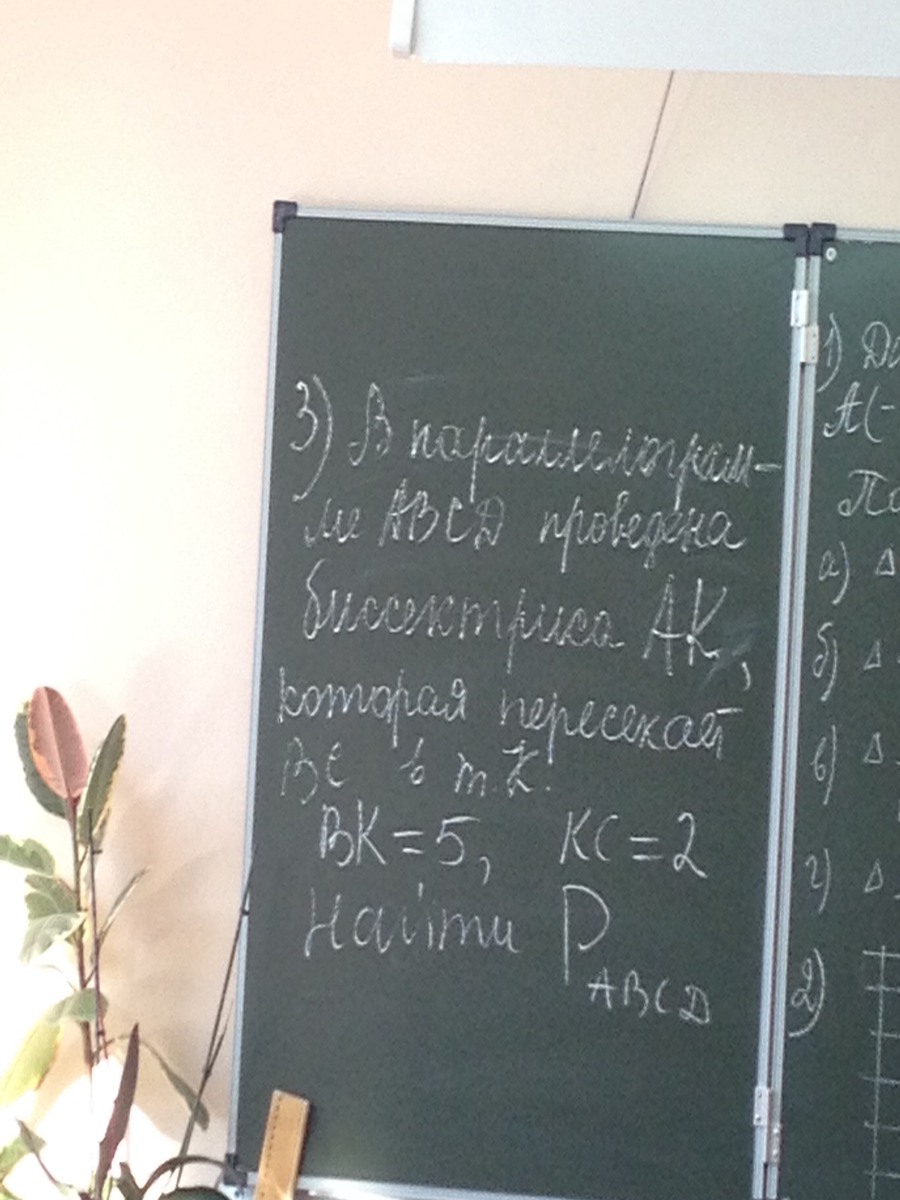 3) В параллелограм-
ме ABCD проведена
биссектриса AK,
которая пересекает
BC в т.K.
BK=5, KC=2
Найти P
ABCD
1)
A(-
а) Δ
б) Δ
в) Δ
г) Δ
2)